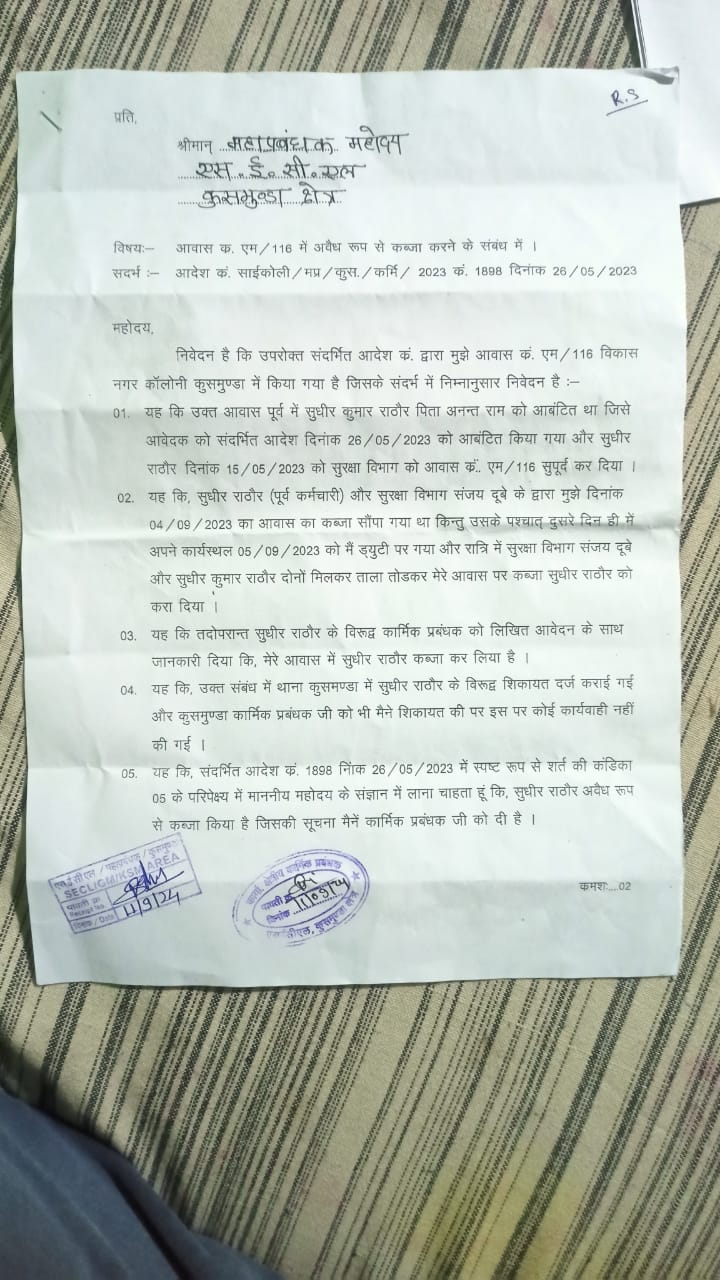 R.S
प्रति,
श्रीमान् महाप्रबंधक महोदय
एस. ई. सी. एल
कुसमुण्डा क्षेत्र
विषयः– आवास क. एम/116 में अवैध रूप से कब्जा करने के संबंध में ।
सदर्भ :– आदेश कं. साईकोली/मप्र/कुस./कर्मि/ 2023 कं. 1898 दिनांक 26/05/2023
महोदय,
निवेदन है कि उपरोक्त संदर्भित आदेश कं. द्वारा मुझे आवास कं. एम/116 विकास
नगर कॉलोनी कुसमुण्डा में किया गया है जिसके संदर्भ में निम्नानुसार निवेदन है :–
01. यह कि उक्त आवास पूर्व में सुधीर कुमार राठौर पिता अनन्त राम को आबंटित था जिसे
आवेदक को संदर्भित आदेश दिनांक 26/05/2023 को आबंटित किया गया और सुधीर
राठौर दिनांक 15/05/2023 को सुरक्षा विभाग को आवास कं. एम/116 सुपूर्द कर दिया ।
02. यह कि, सुधीर राठौर (पूर्व कर्मचारी) और सुरक्षा विभाग संजय दूबे के द्वारा मुझे दिनांक
04/09/2023 का आवास का कब्जा सौंपा गया था किन्तु उसके पश्चात् दुसरे दिन ही में
अपने कार्यस्थल 05/09/2023 को मैं ड्युटी पर गया और रात्रि में सुरक्षा विभाग संजय दूबे
और सुधीर कुमार राठौर दोनों मिलकर ताला तोडकर मेरे आवास पर कब्जा सुधीर राठौर को
करा दिया ।
03. यह कि तदोपरान्त सुधीर राठौर के विरूद्व कार्मिक प्रबंधक को लिखित आवेदन के साथ
जानकारी दिया कि, मेरे आवास में सुधीर राठौर कब्जा कर लिया है ।
04. यह कि, उक्त संबंध में थाना कुसमण्डा में सुधीर राठौर के विरूद्व शिकायत दर्ज कराई गई
और कुसमुण्डा कार्मिक प्रबंधक जी को भी मैने शिकायत की पर इस पर कोई कार्यवाही नहीं
की गई ।
05. यह कि, संदर्भित आदेश कं. 1898 निांक 26/05/2023 में स्पष्ट रूप से शर्त की कंडिका
05 के परिपेक्ष्य में माननीय महोदय के संज्ञान में लाना चाहता हूं कि, सुधीर राठौर अवैध रूप
से कब्जा किया है जिसकी सूचना मैनें कार्मिक प्रबंधक जी को दी है ।
कमशः....02
एस ई सी एल / महाप्रबंधक / कुसमुण्डा
SECL/GM/KSM AREA
पावती क्र
Receipt No.
दिनांक / Date 11/9/24
क्षेत्रीय कार्मिक प्रबंधक
पावती क्र
दिनांक
एसईसीएल, कुसमुण्डा क्षेत्र